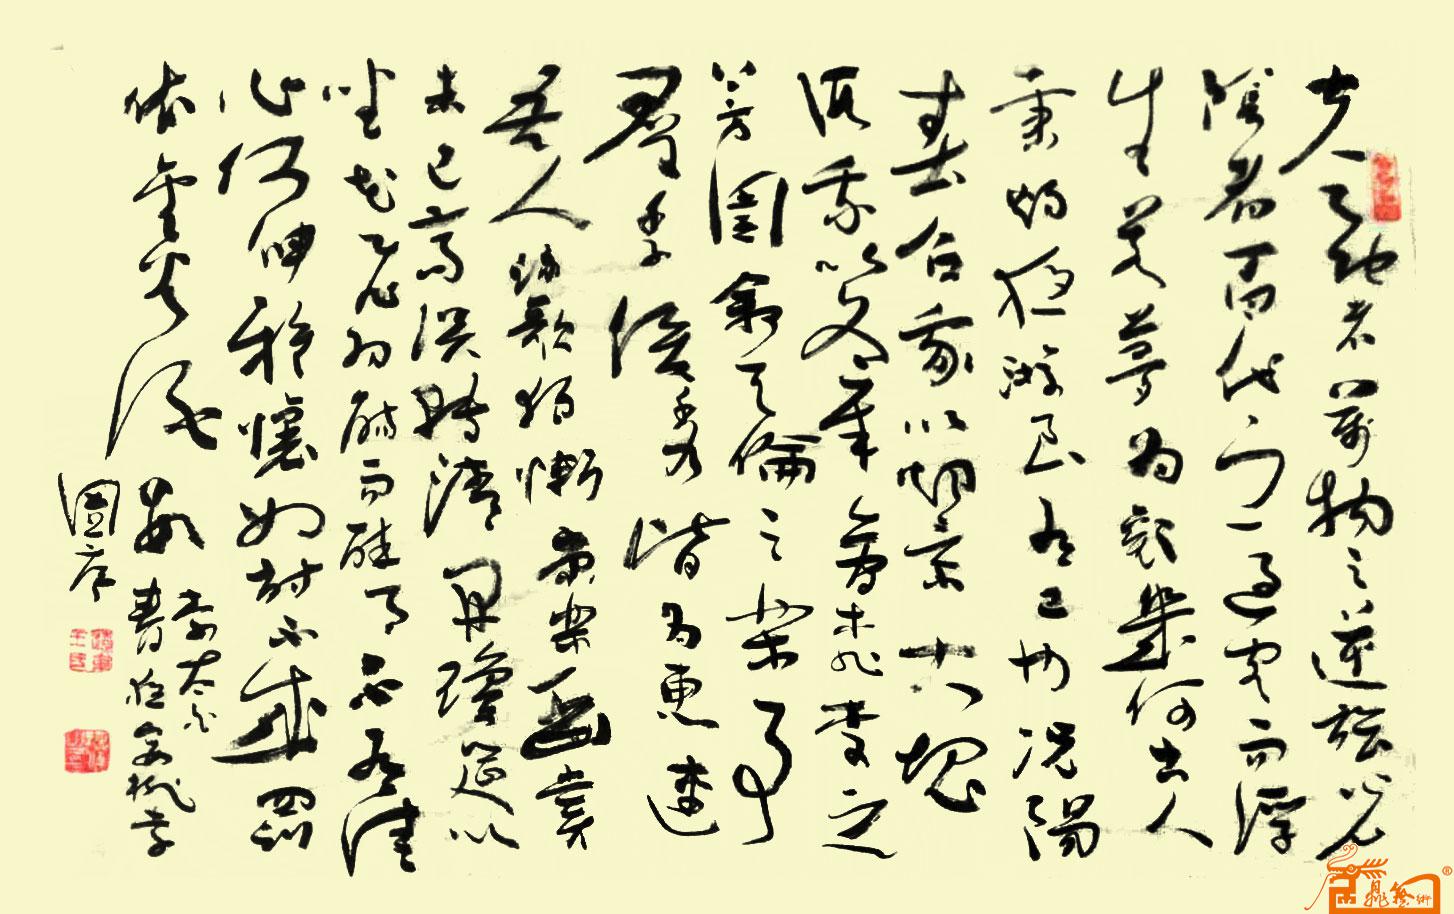 夫天地者萬物之逆旅光
陰者百代之過客而浮
生若夢為歡幾何古人
秉燭夜遊良有以也況陽
春召我以煙景大塊
假我以文章會桃李之
芳園敘天倫之樂事
群季俊秀皆為惠連
吾人詠歌獨慚康樂幽賞
未已高談轉清開瓊筵以
坐花飛羽觴而醉月不有佳
詠何伸雅懷如詩不成罰
依金谷酒數
李太白
春夜宴桃李
園序